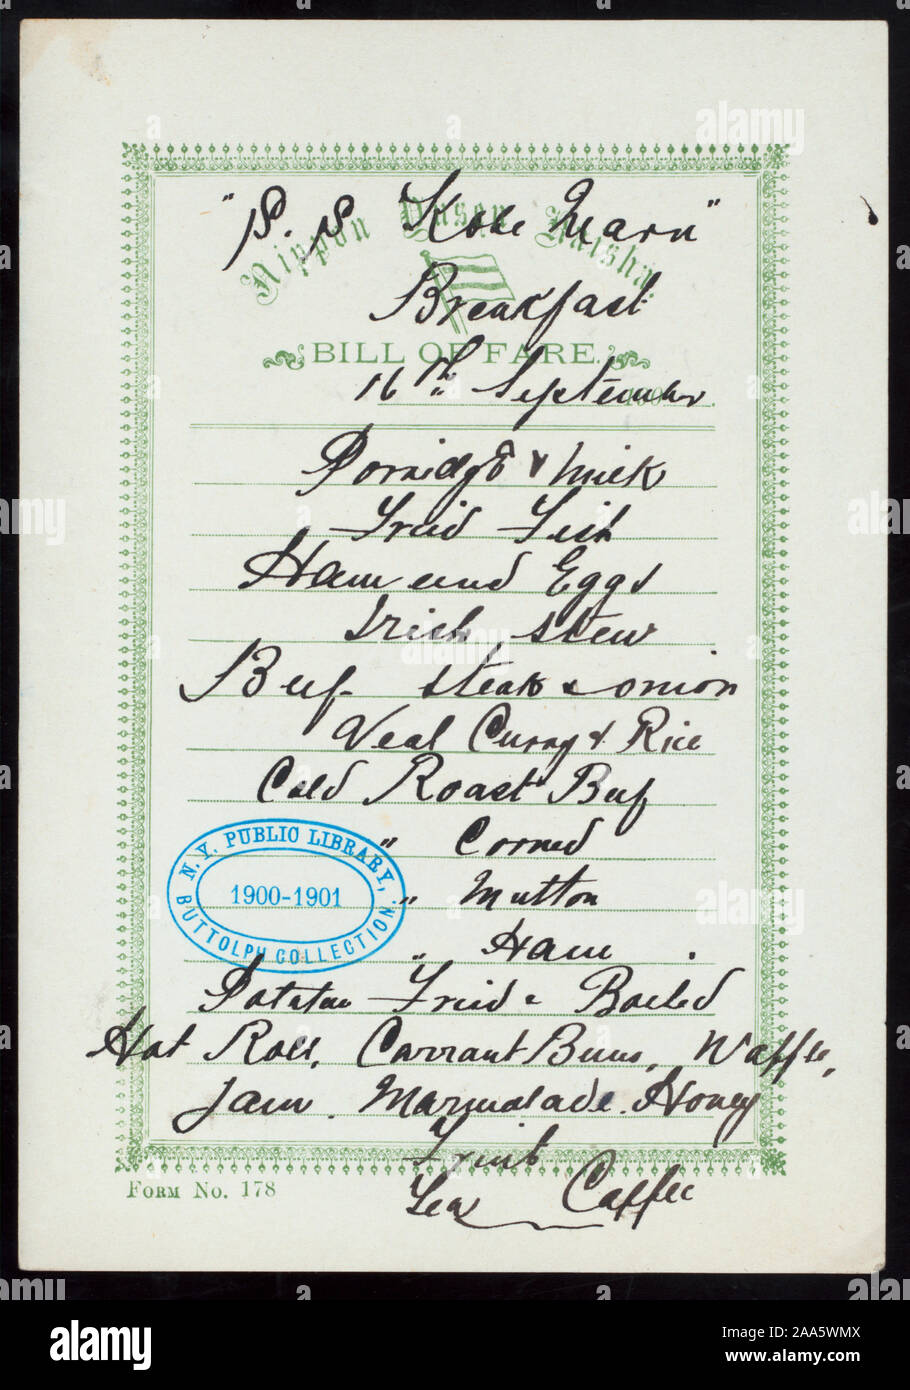 "S. S Kobe Maru"
Nippon Yusen Kaisha
Breakfast
BILL OF FARE.
16th September
Porridge & Milk
Fried Fish
Ham and Eggs
Irish Stew
Beef steak & onion
Veal Curry & Rice
Cold Roast Beef
" Corned
" Mutton
" Ham
N. Y. PUBLIC LIBRARY,
1900-1901
BUTTOLPH COLLECTION.
Potatoe Fried & Boiled
Hot Rolls, Currant Buns, Waffle,
Jam. Marmalade. Honey
Fruit
Tea Caffee
FORM NO. 178
alamy
Image ID: 2AA5WMX
www.alamy.com